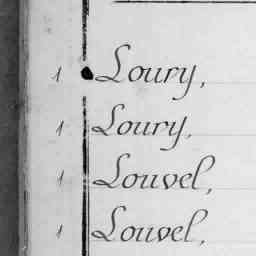 1 Loury,
1 Loury,
1 Louvel,
1 Louvel,